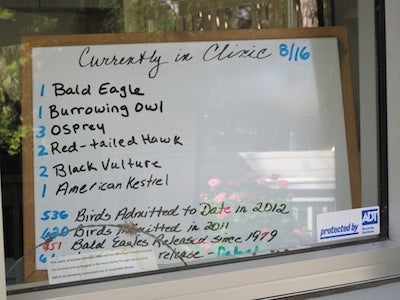 Currently in Clinic 8/16
1 Bald Eagle
1 Burrowing Owl
3 Osprey
2 Red-tailed Hawk
2 Black Vulture
1 American Kestrel
536 Birds Admitted to Date in 2012
620 Birds Admitted in 2011
451 Bald Eagles Released since 1979
release -
protected by ADT